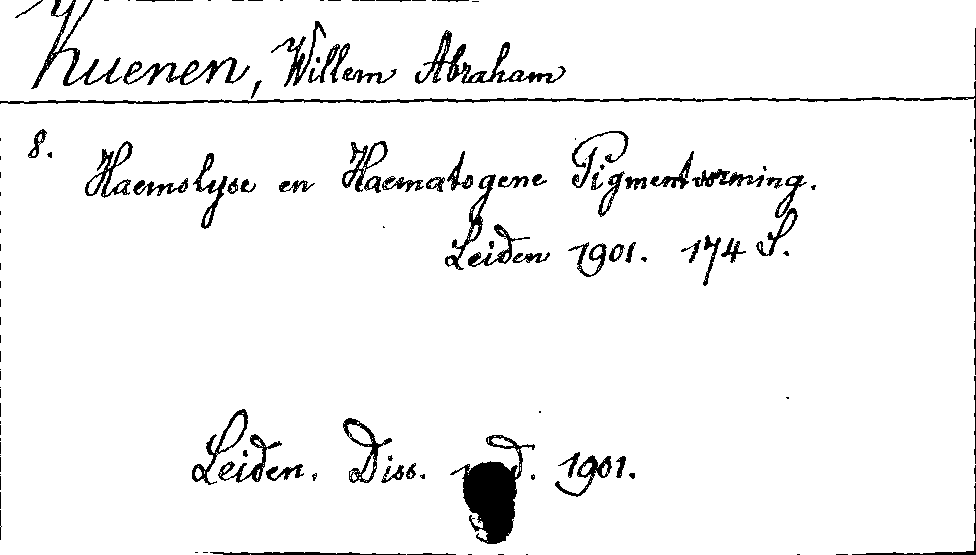 Kuenen, Willem Abraham
8. Haemolyse en Haematogene Pigmentvorming.
Leiden 1901. 174 S.
Leiden. Diss. 1901.